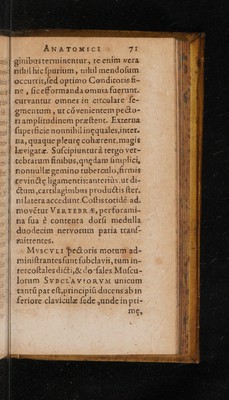 ANATOMICI 71
ginibus terminentur, re enim vera
nihil hic spurium, nihil mendosum
occurrit, sed optimo Conditoris fi-
ne, sic efformanda omnia fuerunt.
curvantur omnes in circulare se-
gmentum, ut cōvenientem pecto-
ri amplitudinem præstent. Externa
superficie nonnihil inęquales, inter-
na, quaque pleurę cohærent, magis
lævigatæ. Suscipiuntur à tergo ver-
tebrarum sinibus, quędam simplici,
nonnullæ gemino tuberculo, firmis
evinctę ligamentis: anterius, ut di-
ctum, cartilaginibus productis ster-
ni latera accedunt. Costis totidē ad-
movētur VERTEBRÆ, per forami-
na sua è contenta dorsi medulla
duodecim nervorum paria trans-
mittentes.
MUSCULI pectoris motum ad-
ministrantes sunt subclavii, tum in-
tercostales dicti, & dorsales Muscu-
lorum SUBCLAVIORVM unicum
tantū par est, principiū ducens ab in
feriore claviculæ sede, unde in pri-
mę,